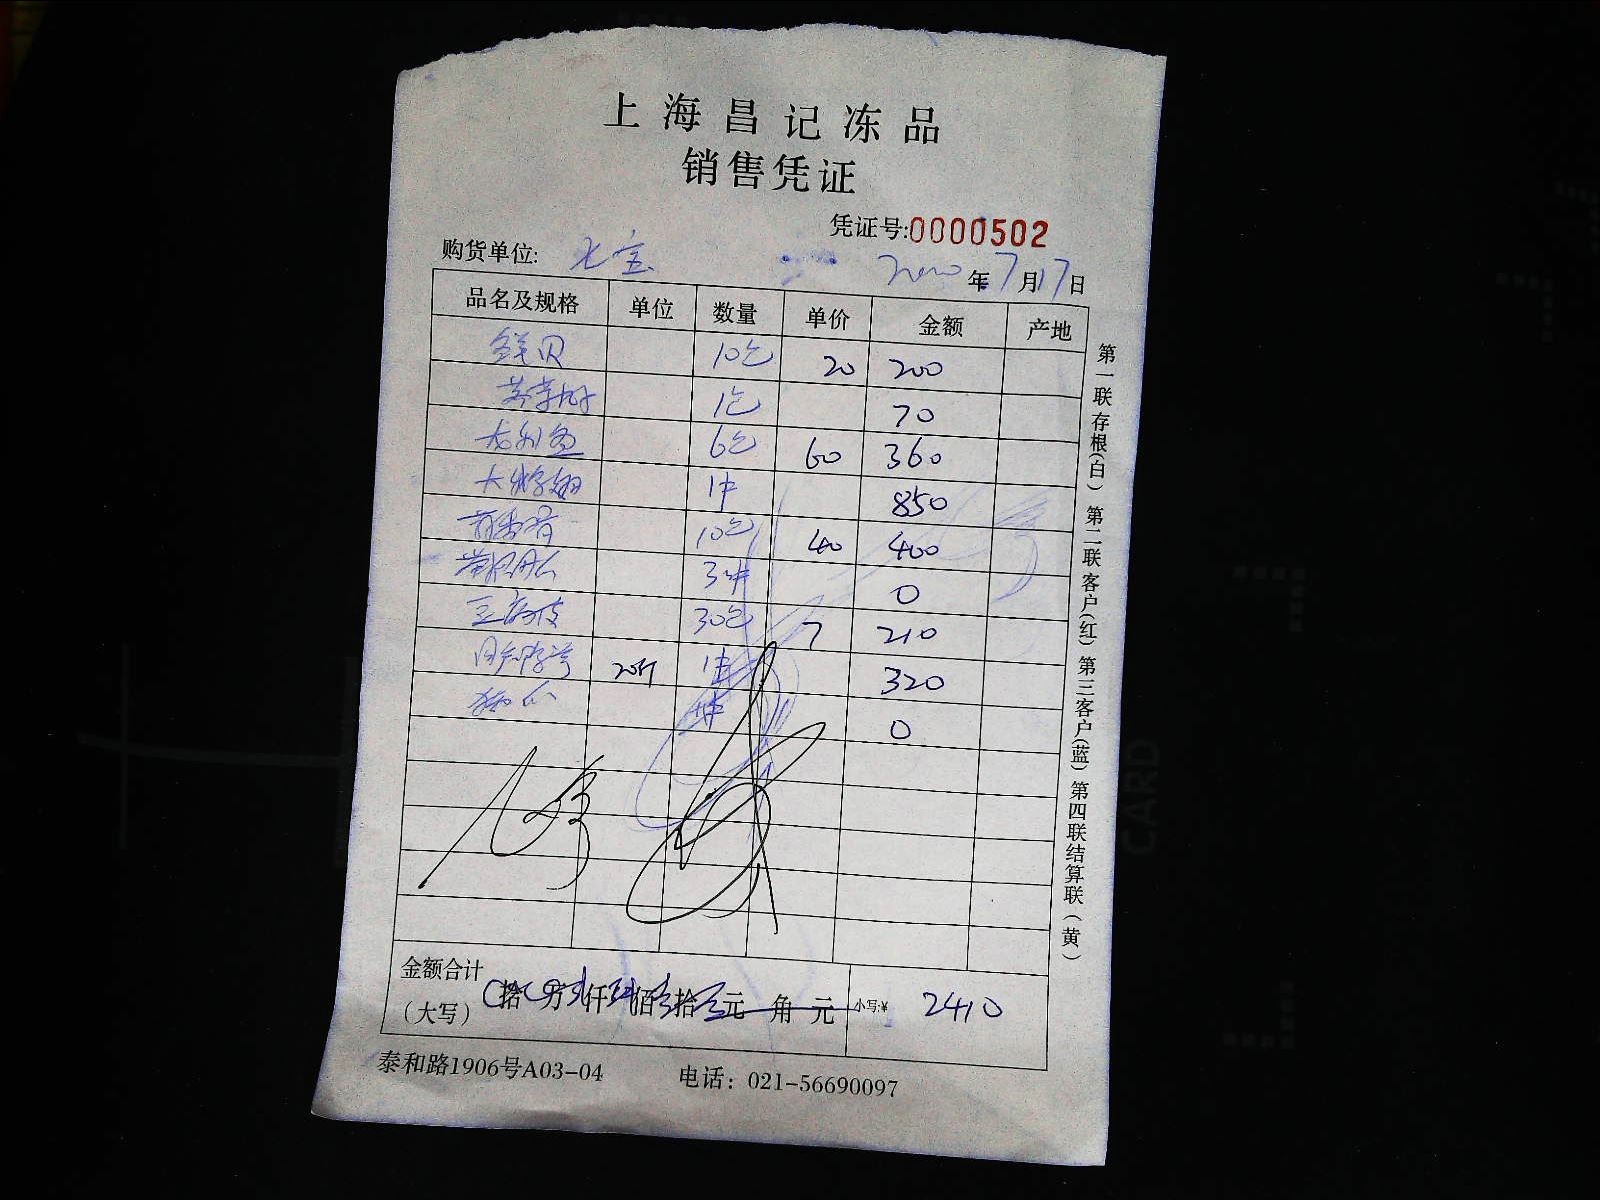 上海昌记冻品
销售凭证
凭证号:0000502
购货单位: 七宝
年 7月17日
品名及规格 单位 数量 单价 金额 产地
鲜贝 10包 20 200
1包 70
龙利鱼 6包 60 360
大 翅 1件 850
10包 40 400
3件 0
豆腐皮 30包 7 210
20斤 1件 320
件 0
金额合计
(大写) 拾 万 仟 佰 拾 元 角 元 小写:¥ 2410
泰和路1906号A03-04 电话: 021-56690097
第一联存根(白) 第二联客户(红) 第三客户(蓝) 第四联结算联(黄)